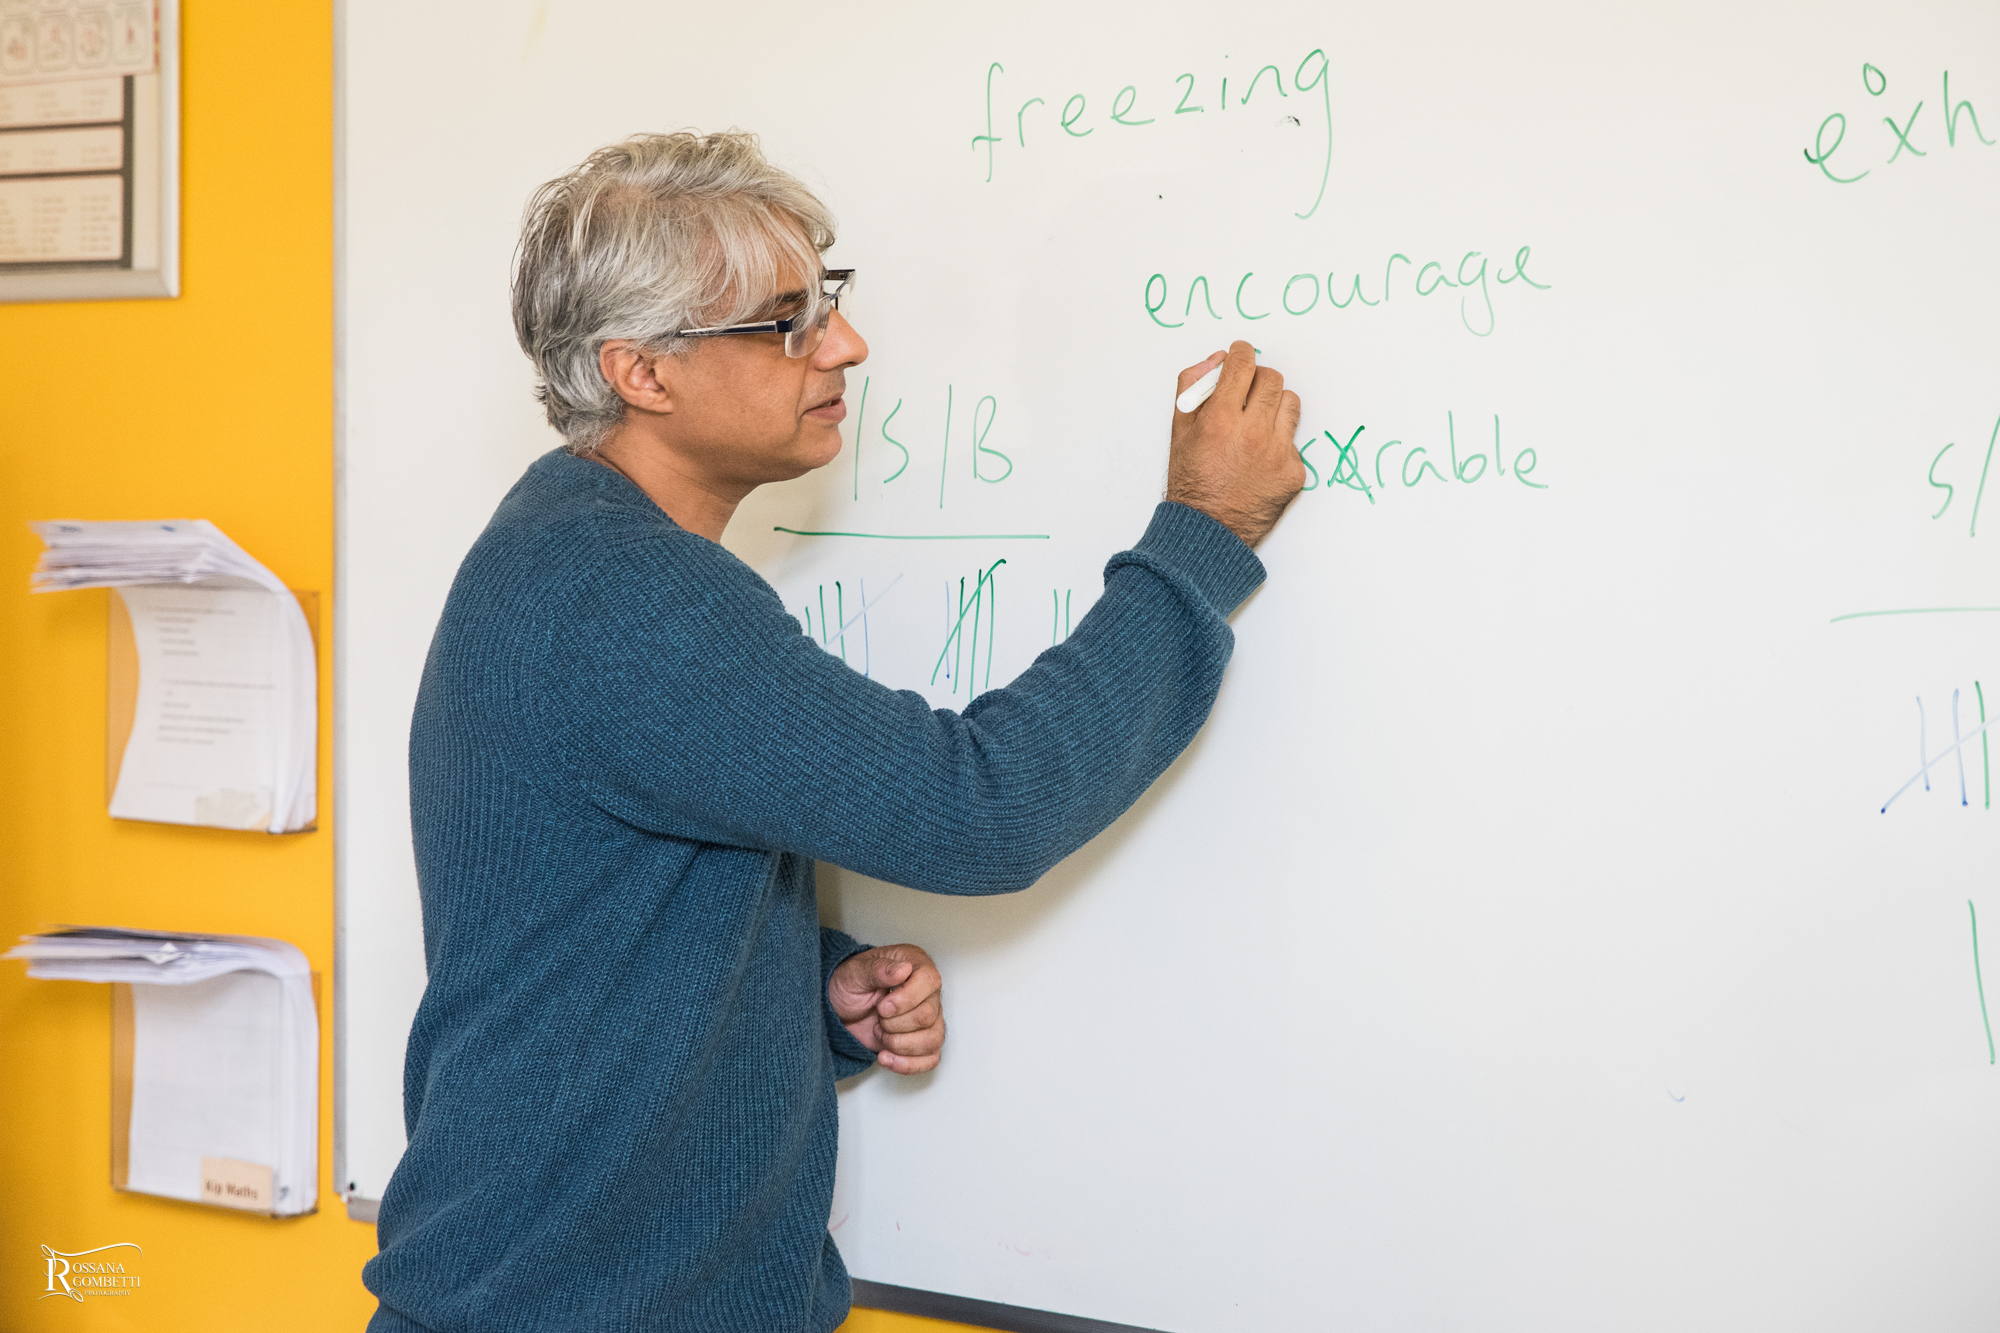 freezing
exh
encourage
/S/B
serable
s/
Kip Maths
ROSSANA
GOMBETTI
PHOTOGRAPHY